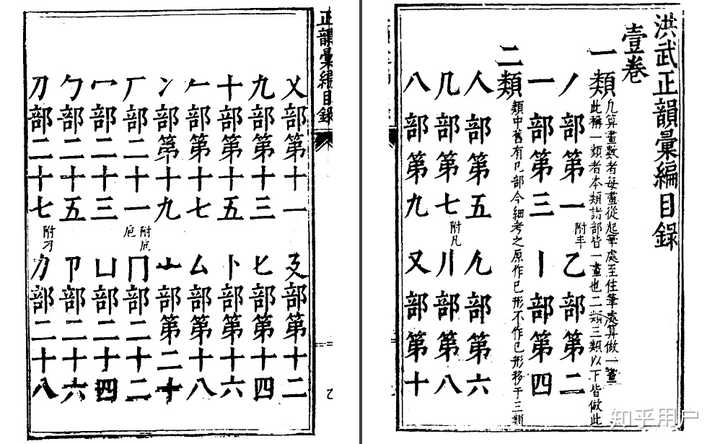 洪武正韻彙編目錄
壹卷
一類
凡算畫數者每畫從起筆處至住筆處算做一畫
此稱一類者本類諸部皆一畫也二類三類以下皆倣此
丿部第一 附丰 乙部第二
一部第三 丨部第四
二類
類中舊有部今細考之原作已形不作形移于三類
人部第五 部第六
几部第七 附凡 部第八
八部第九 又部第十
正韻彙編目錄 乙
乂部第十一 廴部第十二
九部第十三 匕部第十四
十部第十五 卜部第十六
𠂉部第十七 厶部第十八
冫部第十九 亠部第二十
厂部二十一 附 卮 冂部二十二
冖部二十三 凵部二十四
勹部二十五 卩部二十六
刀部二十七 附刁 力部二十八
知乎用户